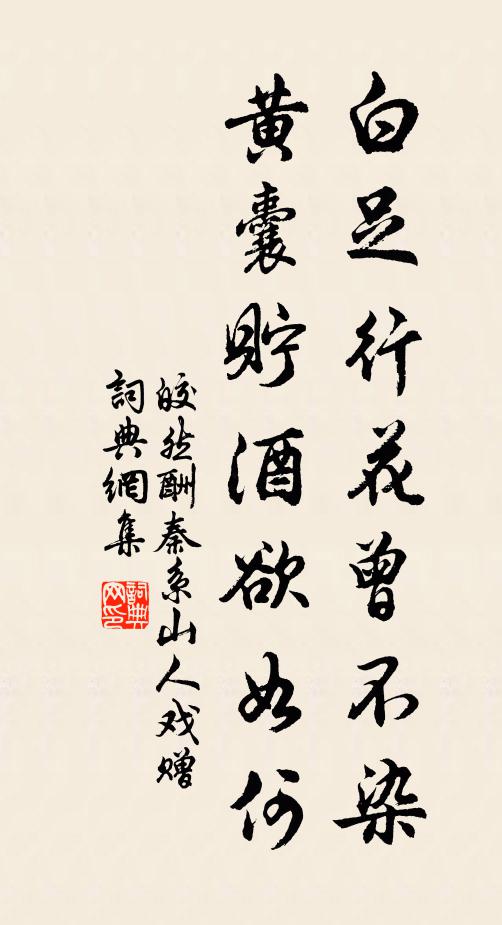 白足行花曾不染
黄囊貯酒欲如何
皎然酬秦系山人戏赠
詞典網集
詞典网印